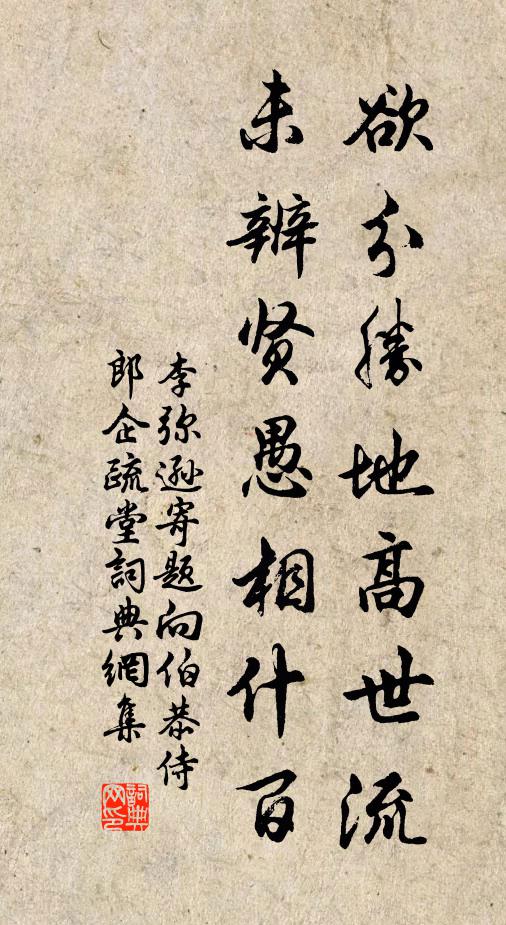 欲分勝地高世流
未辨贤愚相什百
李弥遜寄题向伯恭侍
郎企疏堂詞典網集
詞典
网印